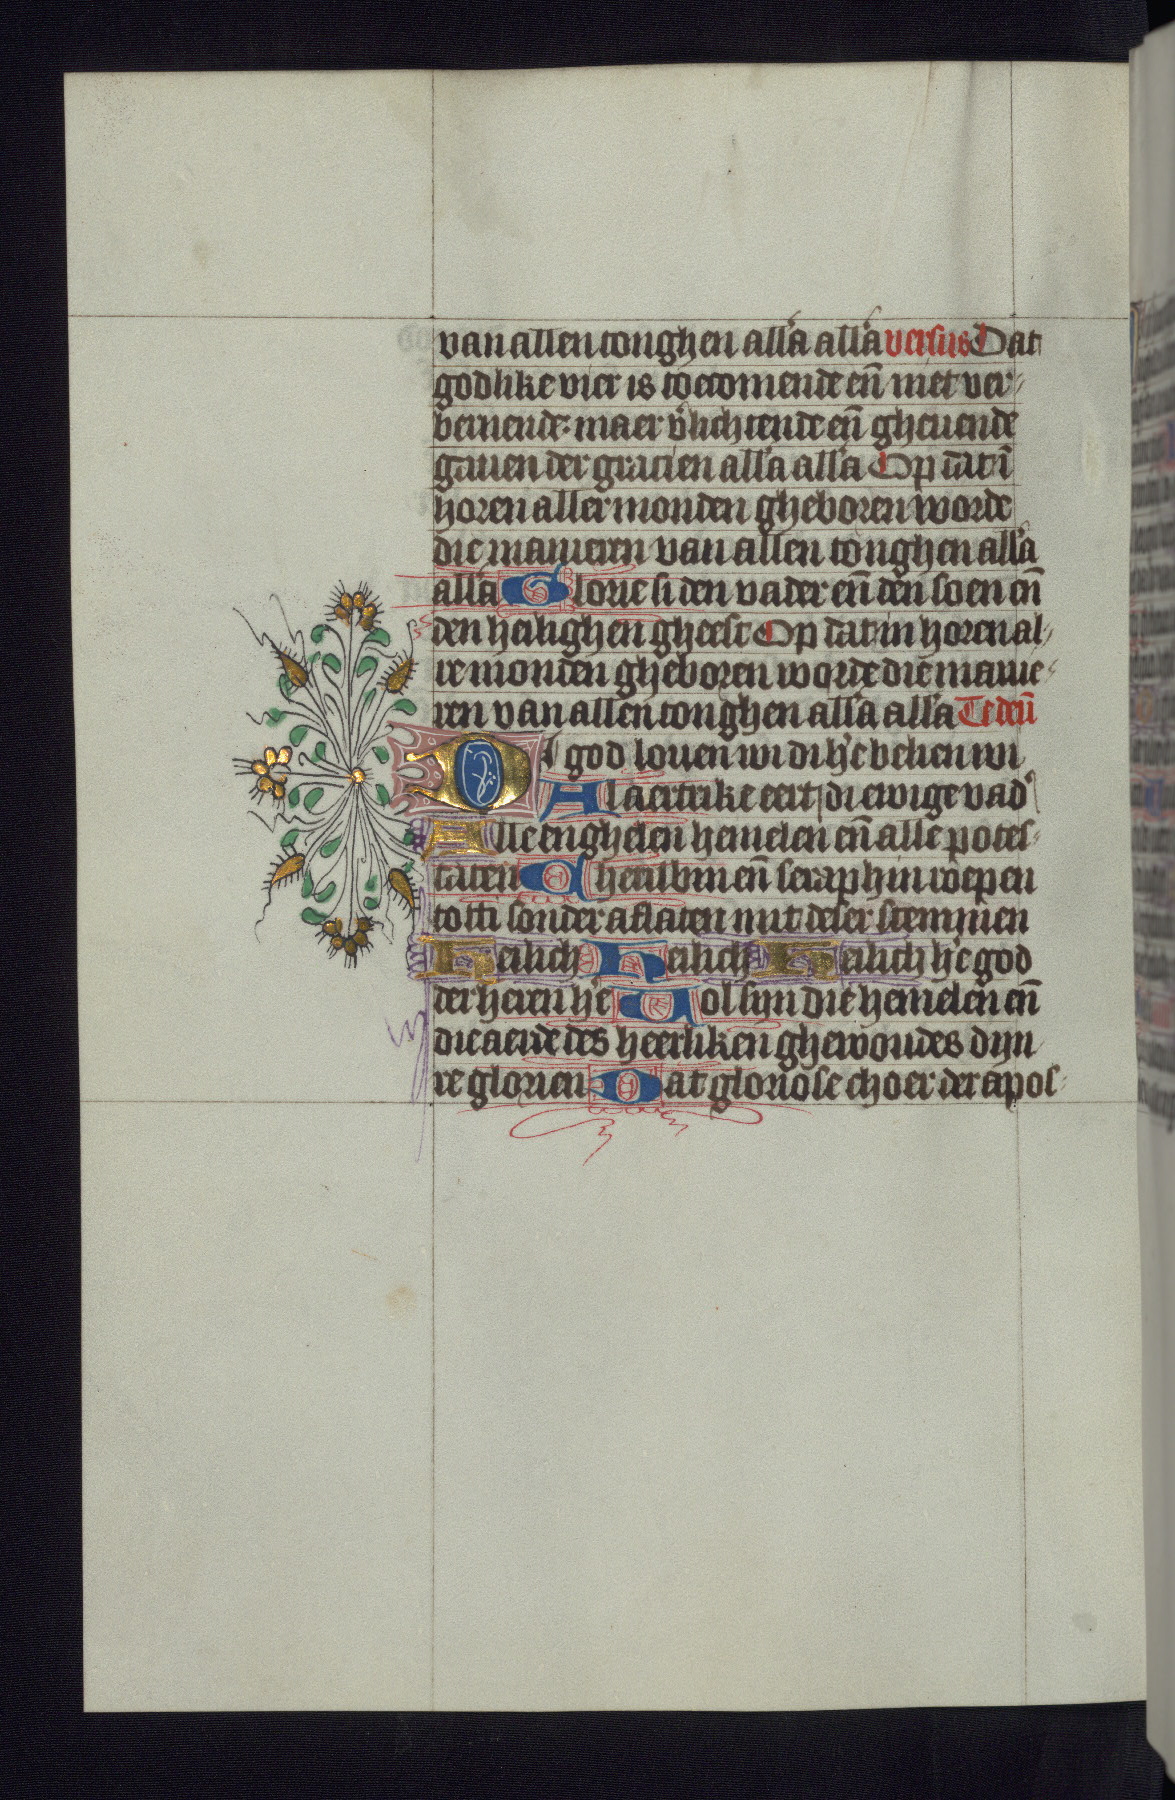 van allen tonghen alla alla versus Dat
godlike vier is toecomende en̄ niet ver-
bernende: maer v'lichtende en̄ gheuende
gauen der gracien alla alla Op dat ī
horen aller monden gheboren worde
die manieren van allen tonghen alla
alla Glorie si den vader en̄ den soen en̄
den heilighen gheest Op dat in horen al-
re monden gheboren worde die manie-
ren van allen tonghen alla alla Te deū
DI god louen wi di h'e belien wi
Al aertrike eert di ewige vad'
Alle enghelen hemelen en̄ alle potes-
taten Cherubin en̄ seraphin roepen
tot ti sonder aflaten mit deser stemmen
Heilich Heilich Heilich h'e god
der heren h'e Vol sijn die hemelen en̄
die aerde des heerliken ghewoudes dijn
re glorien Dat gloriose choer der apos-